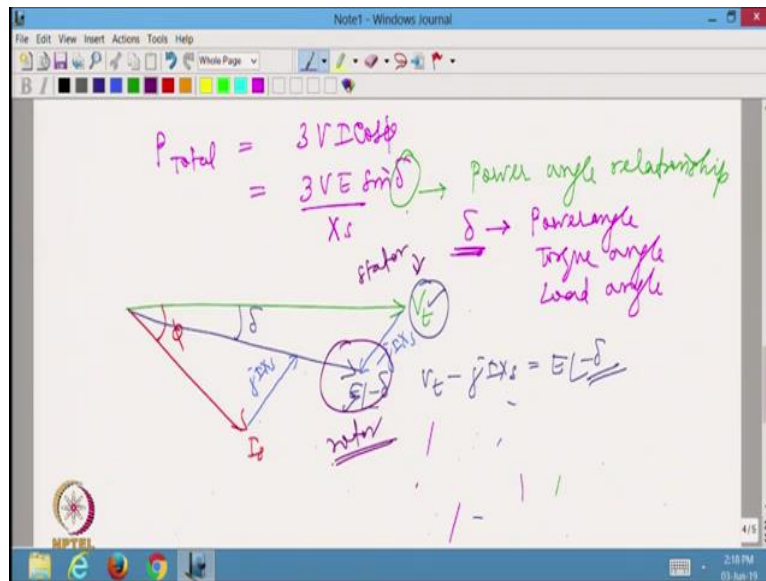 Note1 - Windows Journal
File Edit View Insert Actions Tools Help
Whole Page
B I
P Total = 3 V I Cosφ
= 3 V E Sin δ → Power angle relationship
Xs
δ → Power angle
Torque angle
Load angle
stator
Vt
φ
δ
jIXs
jIXs
E∠-δ
Vt - jIXs = E∠-δ
rotor
NPTEL
4/5
2:18 PM
03-Jun-19